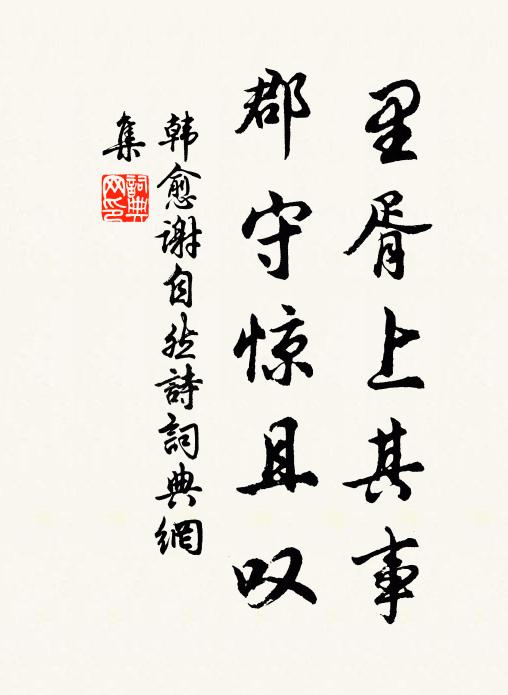 里胥上其事
郡守惊且叹
韩愈谢自然詩詞典網
集
詞典
网印